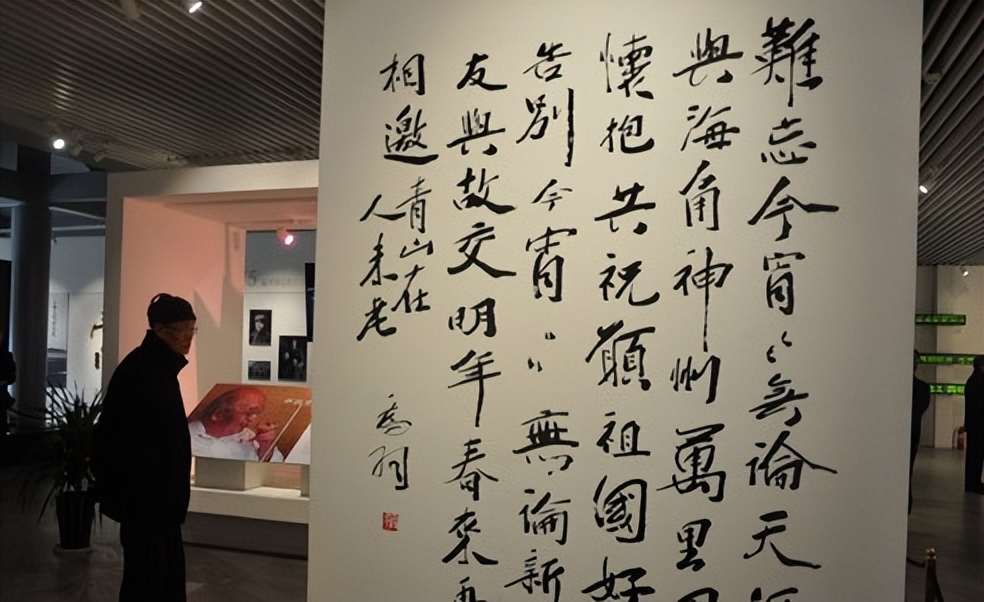 難忘今宵〻無論天
與海角神州萬里
懷抱共祝願祖國好
告別今宵〻無論新
友與故交明年春來再
相邀青山在
人未老
喬羽